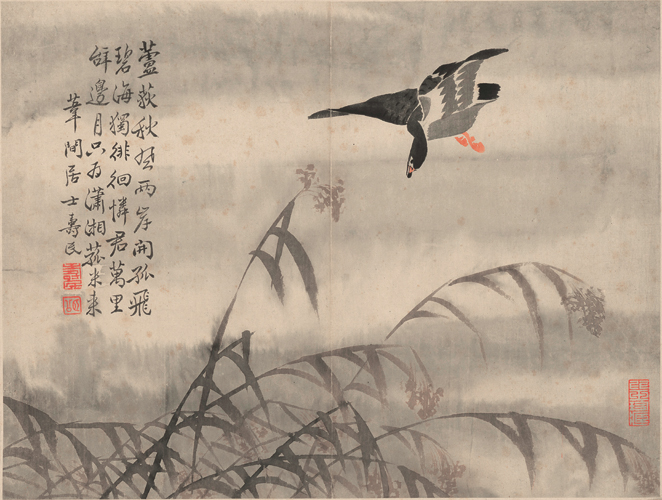 蘆荻秋兩岸開孤飛
碧海獨徘徊憐君萬里
辭邊月只為瀟湘菰米來
葦間居士壽民